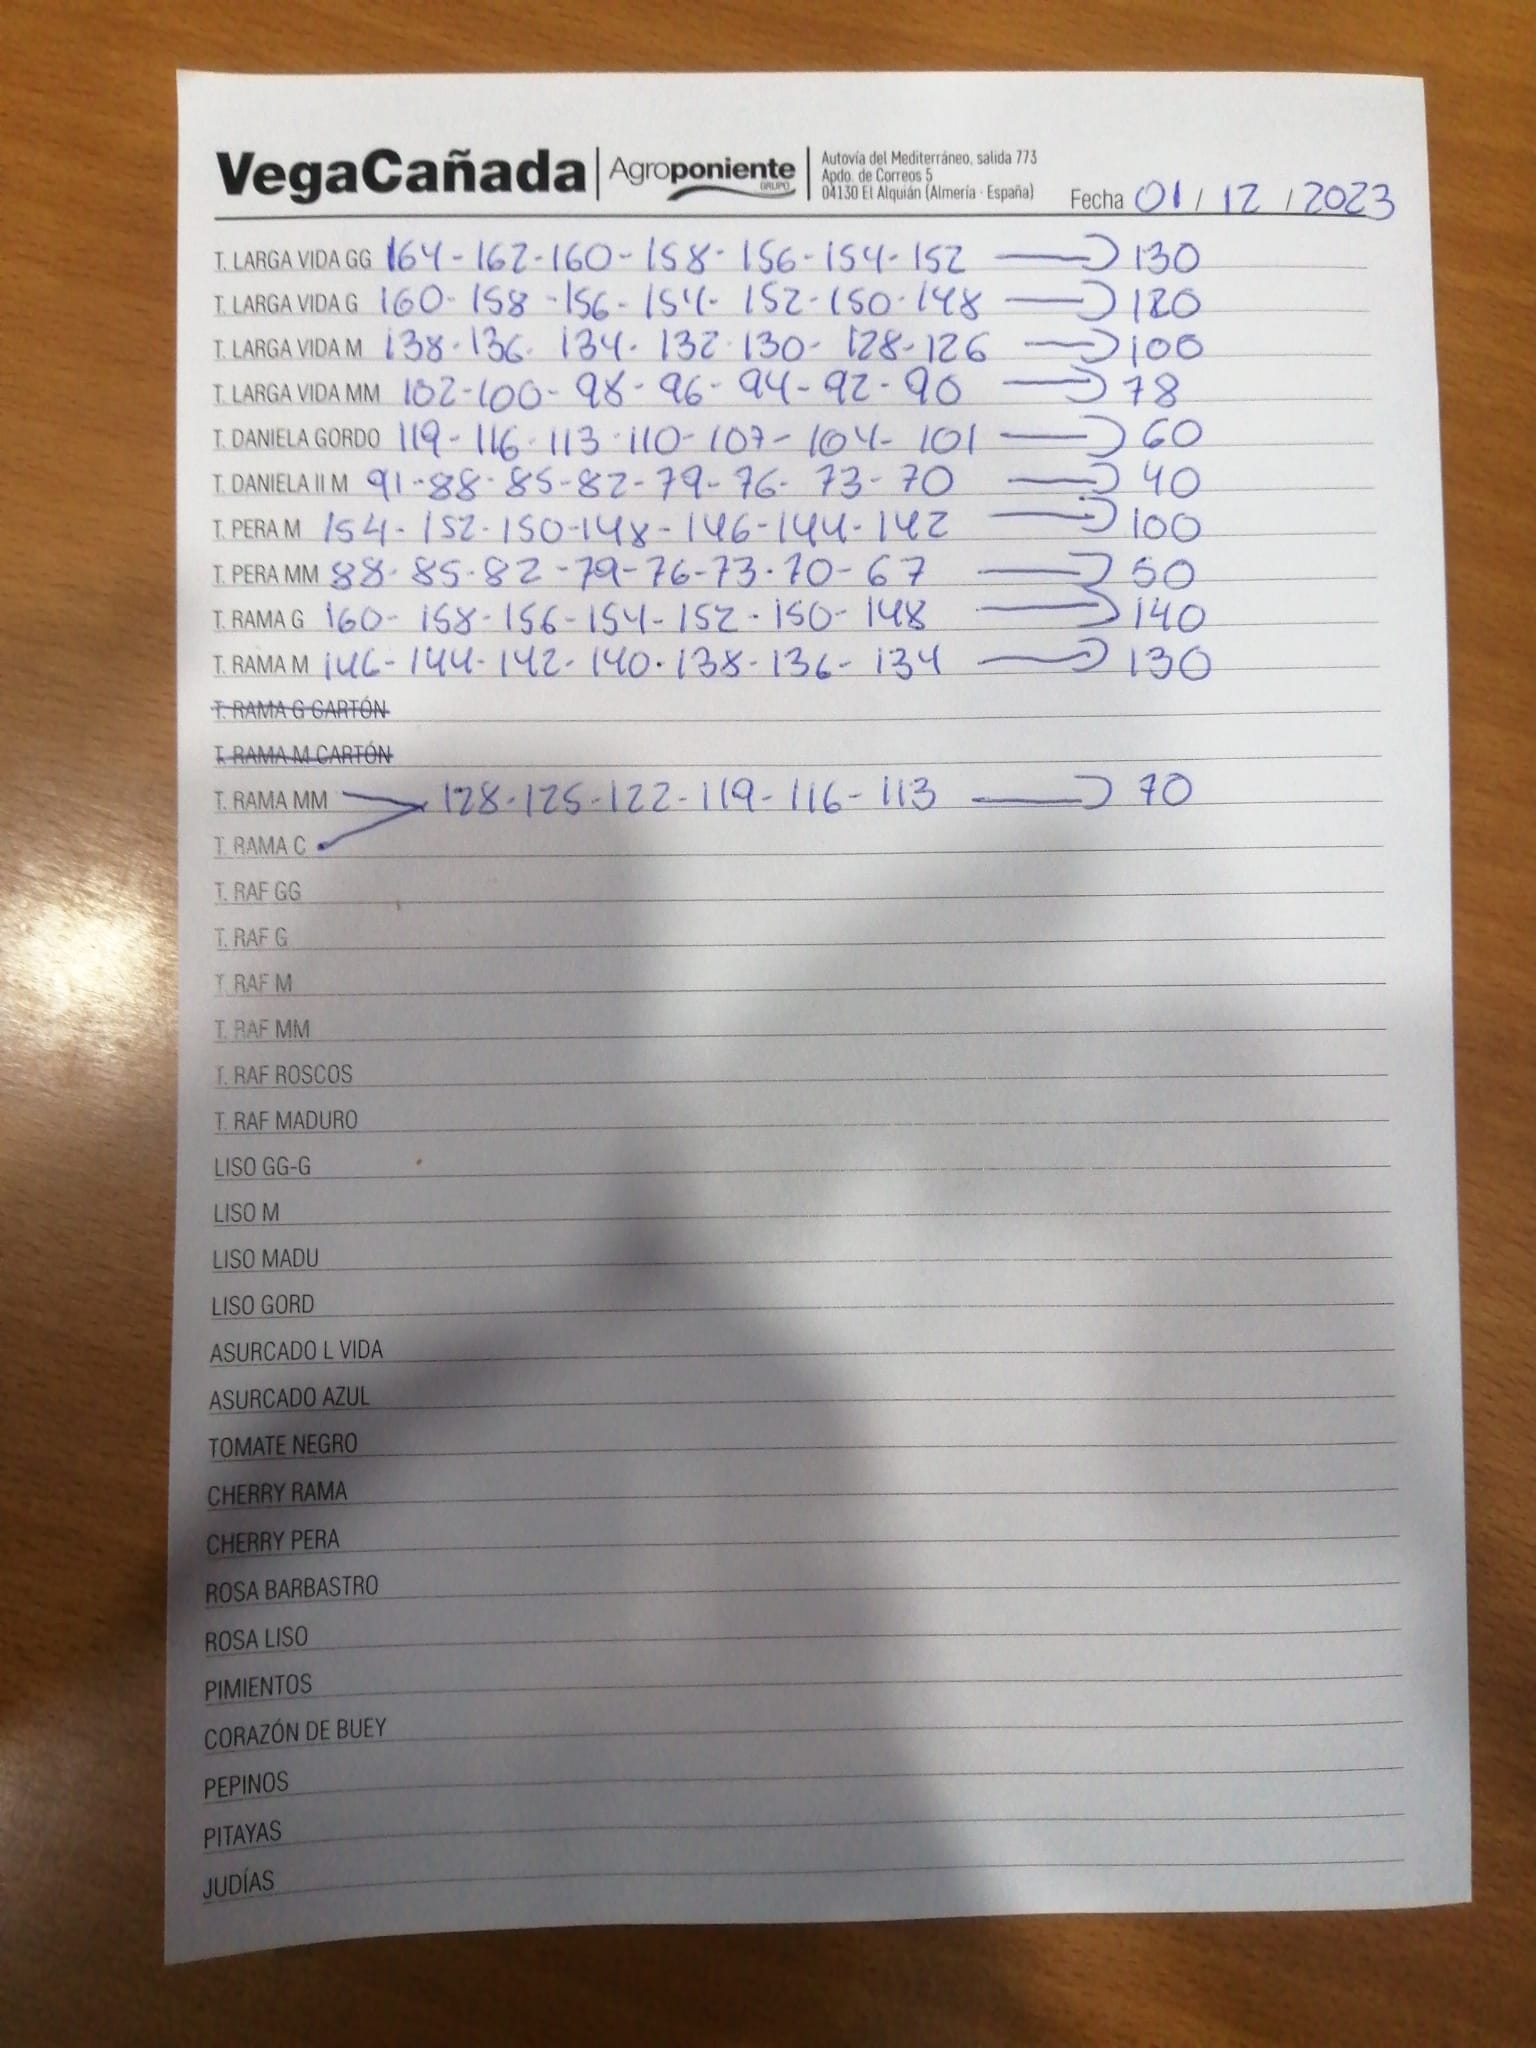 VegaCañada Agroponiente GRUPO
Autovía del Mediterráneo, salida 773
Apdo. de Correos 5
04130 El Alquián (Almería - España)
Fecha 01 / 12 / 2023
T. LARGA VIDA GG 164-162-160-158-156-154-152 → 130
T. LARGA VIDA G 160-158-156-154-152-150-148 → 120
T. LARGA VIDA M 138-136-134-132-130-128-126 → 100
T. LARGA VIDA MM 102-100-98-96-94-92-90 → 78
T. DANIELA GORDO 119-116-113-110-107-104-101 → 60
T. DANIELA II M 91-88-85-82-79-76-73-70 → 40
T. PERA M 154-152-150-148-146-144-142 → 100
T. PERA MM 88-85-82-79-76-73-70-67 → 50
T. RAMA G 160-158-156-154-152-150-148 → 140
T. RAMA M 146-144-142-140-138-136-134 → 130
T. RAMA G CARTÓN
T. RAMA M CARTÓN
T. RAMA MM 128-125-122-119-116-113 → 70
T. RAMA C
T. RAF GG
T. RAF G
T. RAF M
T. RAF MM
T. RAF ROSCOS
T. RAF MADURO
LISO GG-G
LISO M
LISO MADU
LISO GORD
ASURCADO L VIDA
ASURCADO AZUL
TOMATE NEGRO
CHERRY RAMA
CHERRY PERA
ROSA BARBASTRO
ROSA LISO
PIMIENTOS
CORAZÓN DE BUEY
PEPINOS
PITAYAS
JUDÍAS